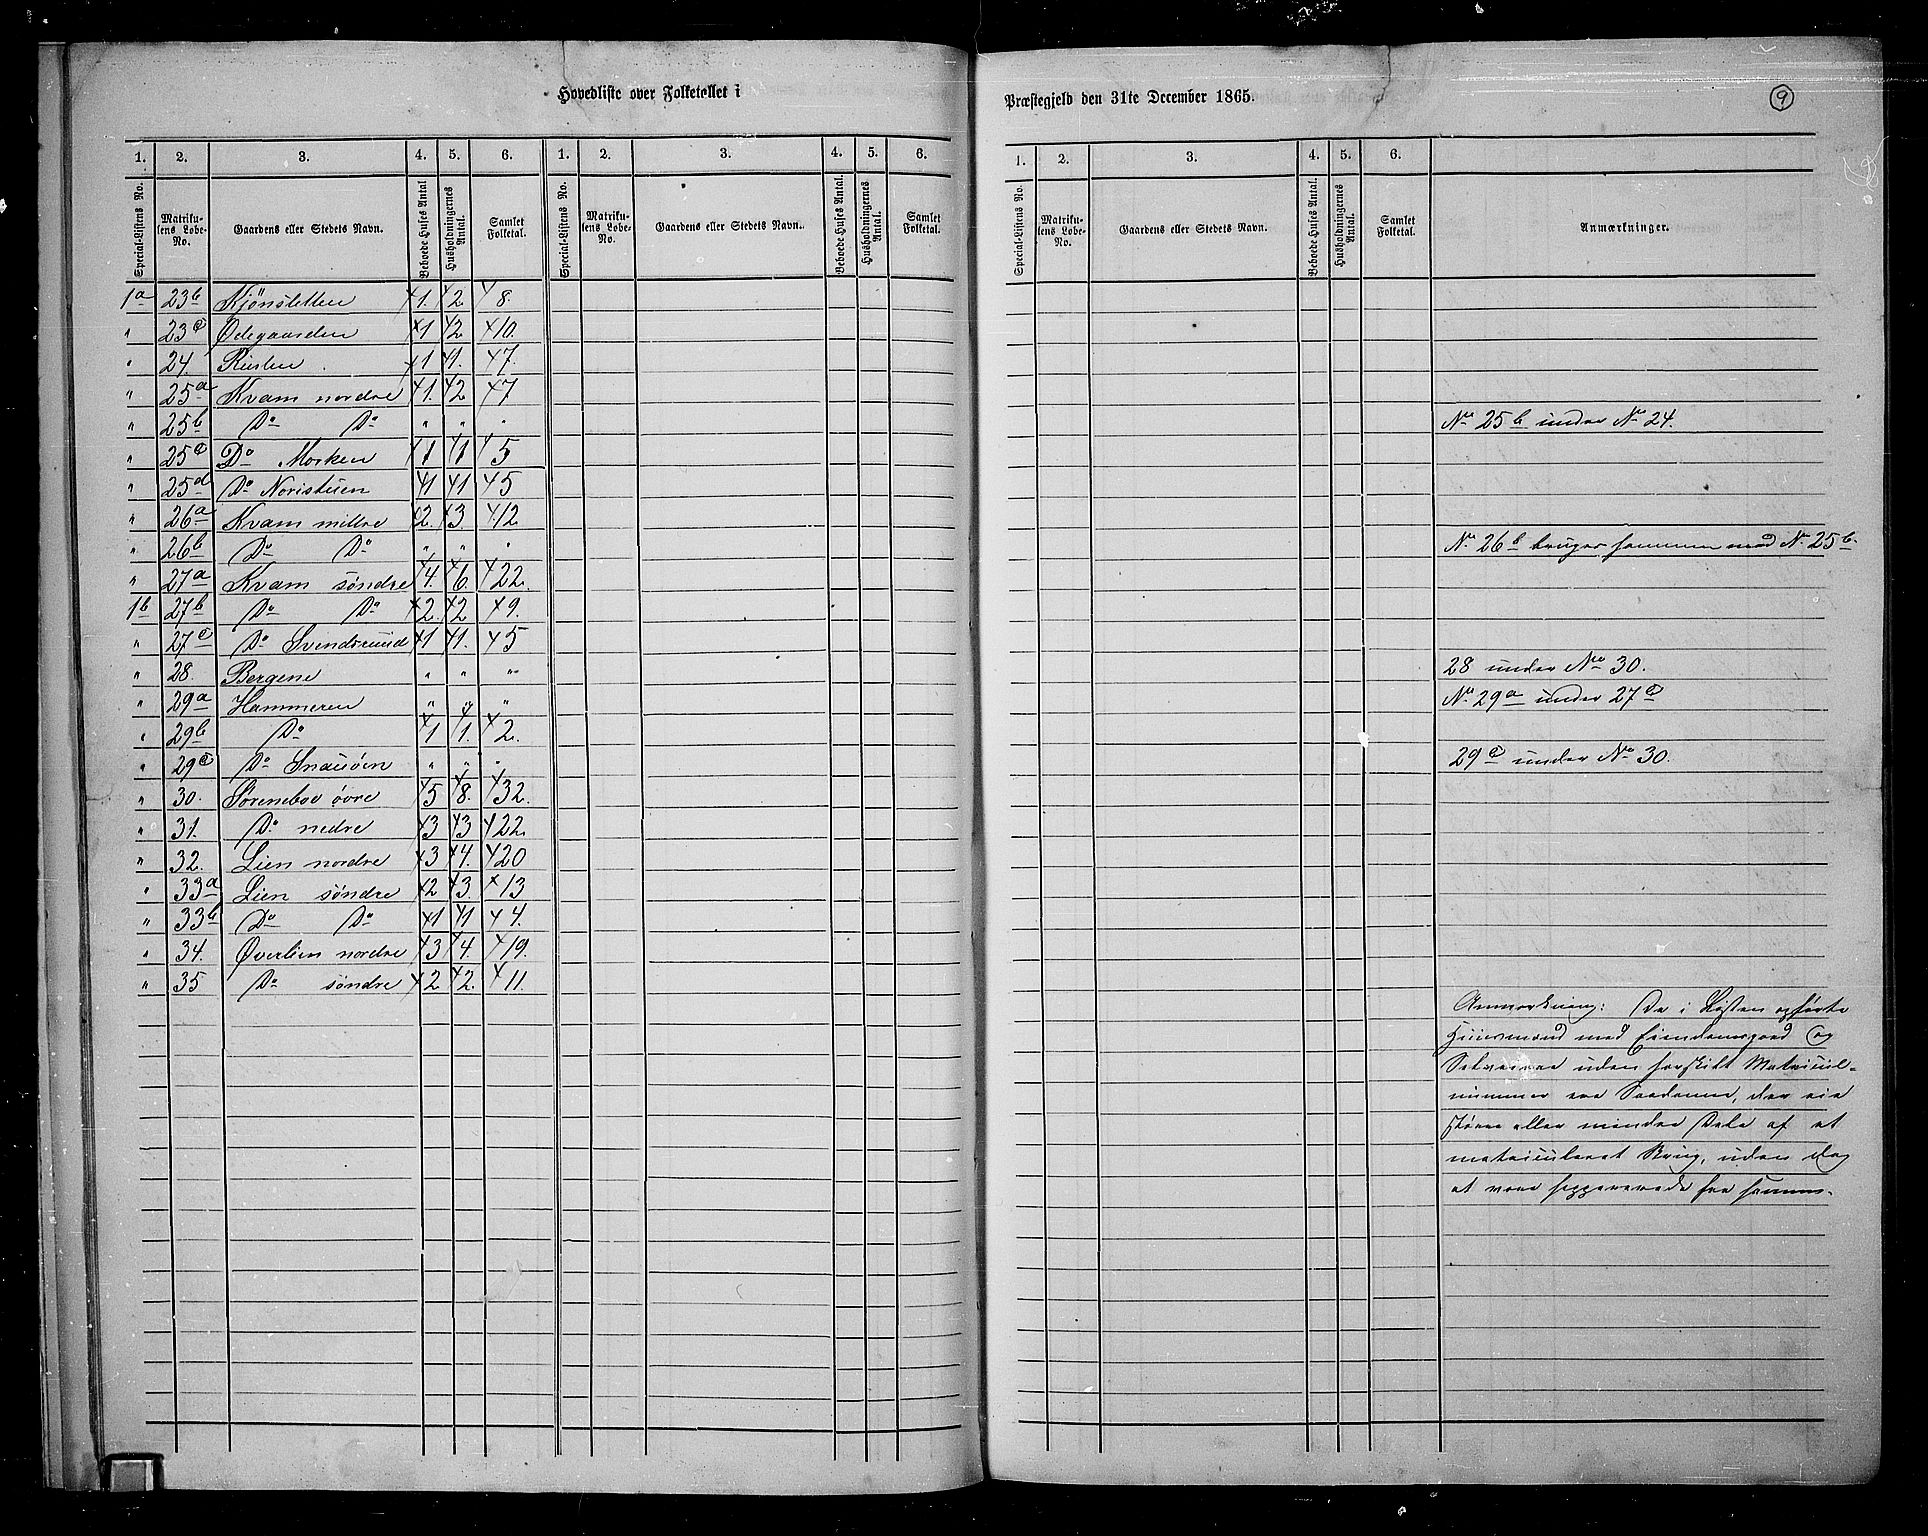 Hovedliste over Folketallet i
Præstegjeld den 31te December 1865.
9
1. 2. 3. 4. 5. 6. 1. 2. 3. 4. 5. 6.
Special-Listens No. Matriku-lens Løbe-No. Gaardens eller Stedets Navn. Beboede Huses Antal Husholdningernes Antal. Samlet Folketal. Special-Listens No. Matriku-lens Løbe-No. Gaardens eller Stedets Navn. Beboede Huses Antal. Husholdningernes Antal. Samlet Folketal.
1. 2. 3. 4. 5. 6.
Special-Listens No. Matriku-lens Løbe-No. Gaardens eller Stedets Navn. Beboede Huses Antal. Husholdningernes Antal. Samlet Folketal. Anmærkninger.
1a 23b 1. 2 8.
" 23c Ødegaarden 1 2 10.
" 24. 1 1. 7.
" 25a Kvam nordre 1. 2 7
" 25b Do Do " " "
" 25c Do Moken 1 1 5
" 25d Do Noristuen 1 1 5
" 26a Kvam mittre 2. 3. 12.
" 26b Do Do " " "
" 27a Kvam søndre 4. 6. 22.
1b 27b Do Do 2. 2 9.
" 27c Do Svendsruud 1 1. 5
" 28. Bergene " " "
" 29a Hammeren " " "
" 29b Do 1 1. 2.
" 29c Do " " "
" 30. Sørenebøe øvre 5 8. 32.
" 31. Do nedre 3 3 22.
" 32. Lien nordre 3 4. 20
" 33a Lien søndre 2 3. 13
" 33b Do Do 1 1 4.
" 34. Øverlien nordre 3 4. 19.
" 35 Do søndre 2 2. 11.
No 25b under No 24.
No 26b bruges sammen med No 25b.
28 under No 30.
No 29a under 27c
29c under No 30.
Anmærkning: De i Listen opførte
Huusmænd med Eiendomsgaard og
Selveiere uden særskilt Matricul-
nummer ere Saadanne, der eie
større eller mindre Dele af et
matriculeret Brug, uden dog
at være sepparerede fra samme.